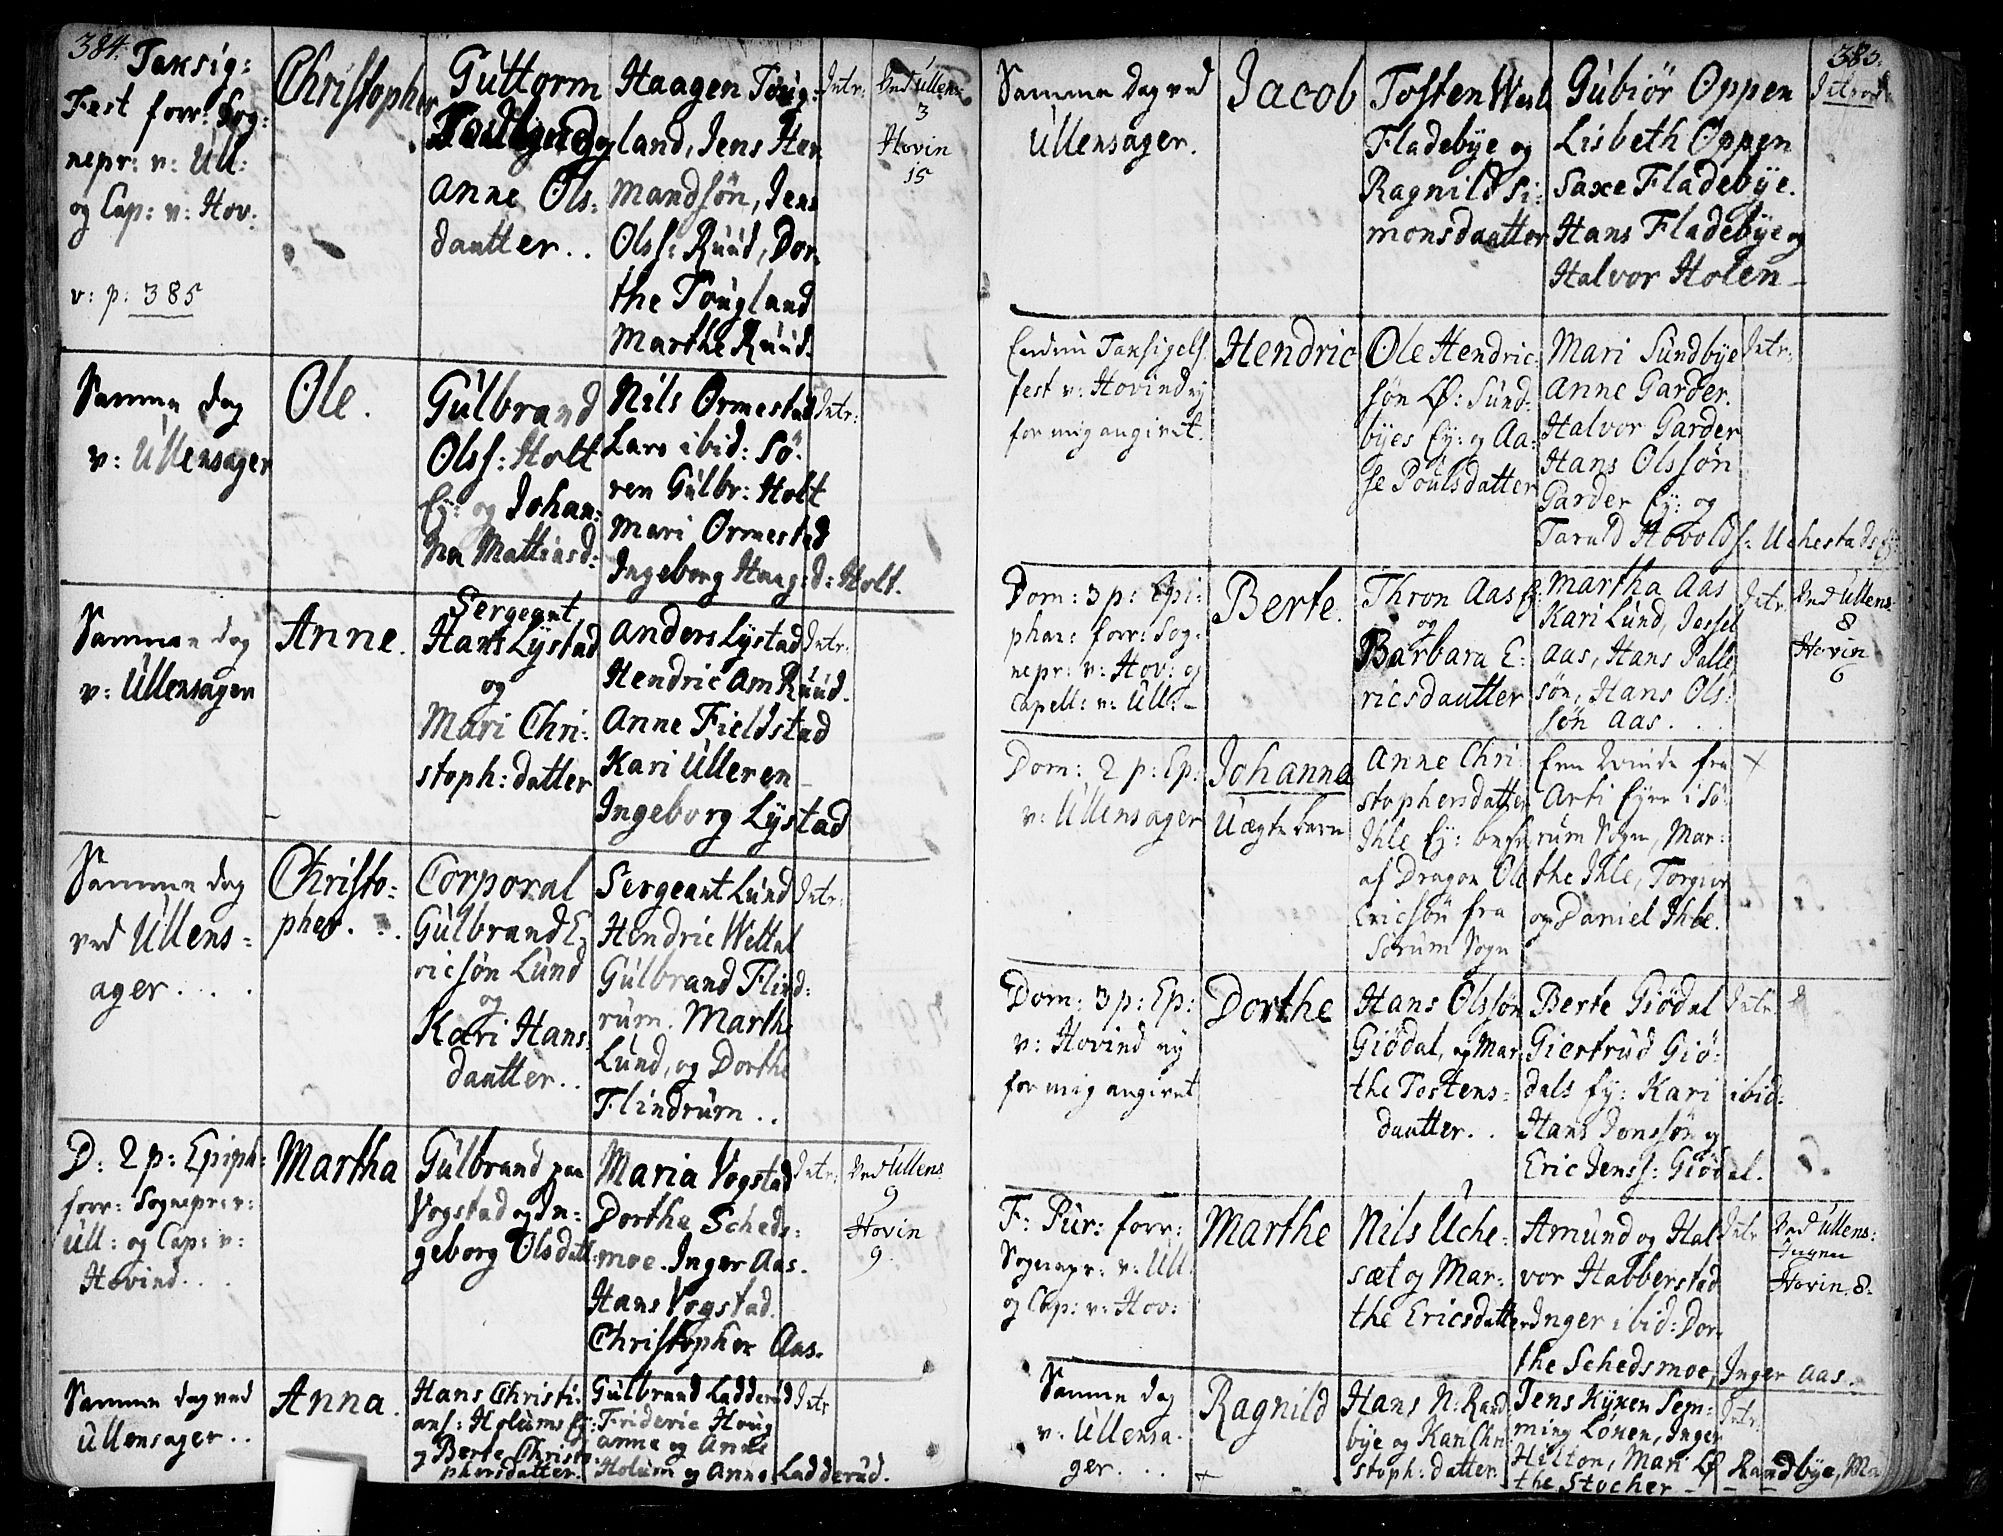 384.
Taksig:
Fest forr: Sog:
nepr: v: Ull:
og Cap: v: Hov:
v: p: 385
Christopher
Guttorm
og
Anne Ols:
dautter..
Haagen Toug:
land, Jens Her
mandsøn, Jens
Olss: Ruud, Dor:
the Tougland
Marthe Ruud.
Intr:
Ved Ullens:
3
Hovin
15
Samme dag
v: Ullensager
Ole.
Gulbrand
Olss: Holt
Ey: og Johan:
na Mattiasd:
Nils Ormestad
Lars ibid: Sö:
ren Gulbr: Holt
Mari Ormestad
Ingeborg Haag:d: Holt.
Intr:
Samme dag
v: Ullensager
Anne.
Sergeant
Hans Lystad
og
Mari Chri:
stoph: datter
Anders Lystad
Hendric Am Ruud.
Anne Fieldstad
Kari Ulleren
Ingeborg Lystad
Intr:
Samme dag
ved Ullens=
ager...
Christo=
pher...
Corporal
Gulbrand E
ricsøn Lund
og
Kari Hans
dautter..
Sergeant Lund
Hendric Wettal
Gulbrand Flind:
rum. Marthe
Lund, og Dorthe
Flindrum..
Intr:
D: 2 p: Epiph:
forr: Sognepr: v:
Ull: og Cap: v:
Hovind...
Martha
Gulbrand paa
Vogstad og In=
geborg Olsdatt
Maria Vogstad
Dorthe Scheds:
moe. Inger Aas.
Hans Vogstad.
Christopher Aas.
Intr:
Ved Ullens
9
Hovin
9.
Samme dag ved
Ullensager..
Anna.
Hans Christi:
ans: Holums Ey:
og Berte Christo
phersdatter.
Gulbrand Ladderud
Frideric Houg
Anne og Anne
Holum og Anne Ladderud.
Intr
385.
Samme dag ved
Ullensager.
Jacob
Tosten Westl
Fladebye og
Ragnild Si:
monsdautter
Gubiör Oppen
Lisbeth Oppen
Saxe Fladebye.
Hans Fladebye og
Halvor Holen
Endnu Taksigels
fest v: Hovind ny
for mig angivet.
Hendric
Ole Hendric:
søn Lø: Sund:
byes Ey: og Aa:
se Poulsdatter
Mari Sundbye
Anne Garder.
Halvor Garder
Hans Olssøn
Garder Ey: og
Tarald Hovolds: Uchestads Ey:
Intr:
Dom: 3 p: Epi:
phan: forr: Sog:
nepr: v: Hov: og
Capell: v: Ull:
Berte.
Thron Aas Ey
og
Barbara E:
ricsdautter
Martha Aas
Kari Lund, Jossel
Aas, Hans Palle
søn, Hans Ols:
søn Aas...
Intr
Ved Ullens:
8
Hovin
6
Dom: 2 p: Ep:
v: Ullensager
Johanna
Uægte barn
Anne Chri:
stophersdatter
Ihle Ey: besv
af Dragon Ole
Ericsøn fra
Sørum Sogn
Een Qvinde fra
Arti Eyer i Sø:
rum Sogn, Mar:
the Ihle, Torgier
og Daniel Ihle.
+
Dom: 3 p: Ep:
v: Hovind ny
for mig angivet
Dorthe
Hans Olssøn
Giödal, og Mar
the Tostens:
dautter..
Berte Giödal
Giertrud Giö:
dals Ey: Kari ibid:
Hans Jonssøn og
Eric Jenss: Giödal.
Intr:
F: Pur: forr:
Sognepr: v: Ull:
og Cap: v: Hov:
Marthe
Nils Uche:
sæt og Mar:
the Ericsdatter
Amund og Hal
vor Habberstad
Inger ibid: Dor:
the Schedsmoe, Inger Aas.
Intr
Ved Ullens:
Ingen
Hovin 8.
Samme dag
v: Ullensa
ger...
Ragnild
+
Hans N: Rand
bye og Kari Chri
stoph: datter.
Jens Kyxen Sem:
ming Lönen, Inger
Helton, Mari Lø Randbye, Ma
the Stocher
Intr: